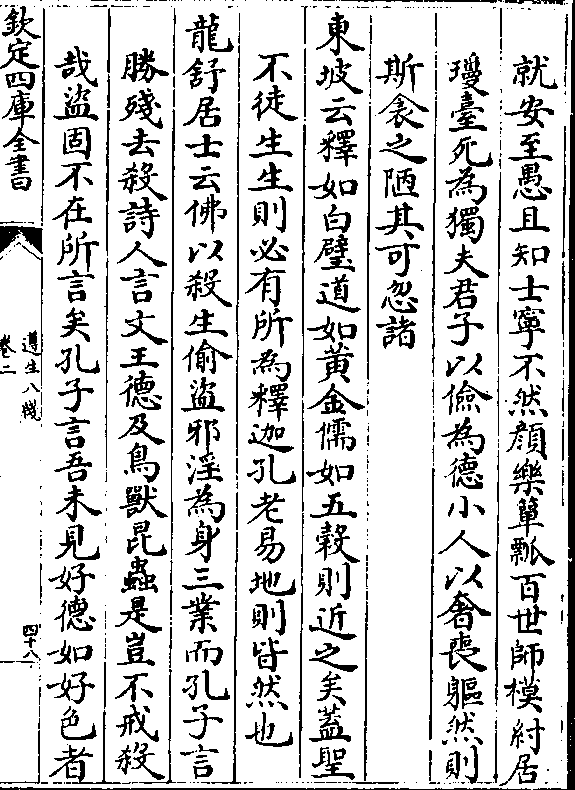 就安至愚且知士寧不然顔樂簞瓢百世師模紂居
瓊臺死為獨夫君子以儉為德小人以奢喪軀然則
斯衾之陋其可忽諸
東坡云釋如白璧道如黄金儒如五穀則近之矣蓋聖
不徒生生則必有所為釋迦孔老易地則皆然也
龍舒居士云佛以殺生偷盜邪淫為身三業而孔子言
勝殘去殺詩人言文王德及鳥獸昆蟲是豈不戒殺
哉盜固不在所言矣孔子言吾未見好德如好色者
欽定四庫全書
遵生八牋
卷二
四十八